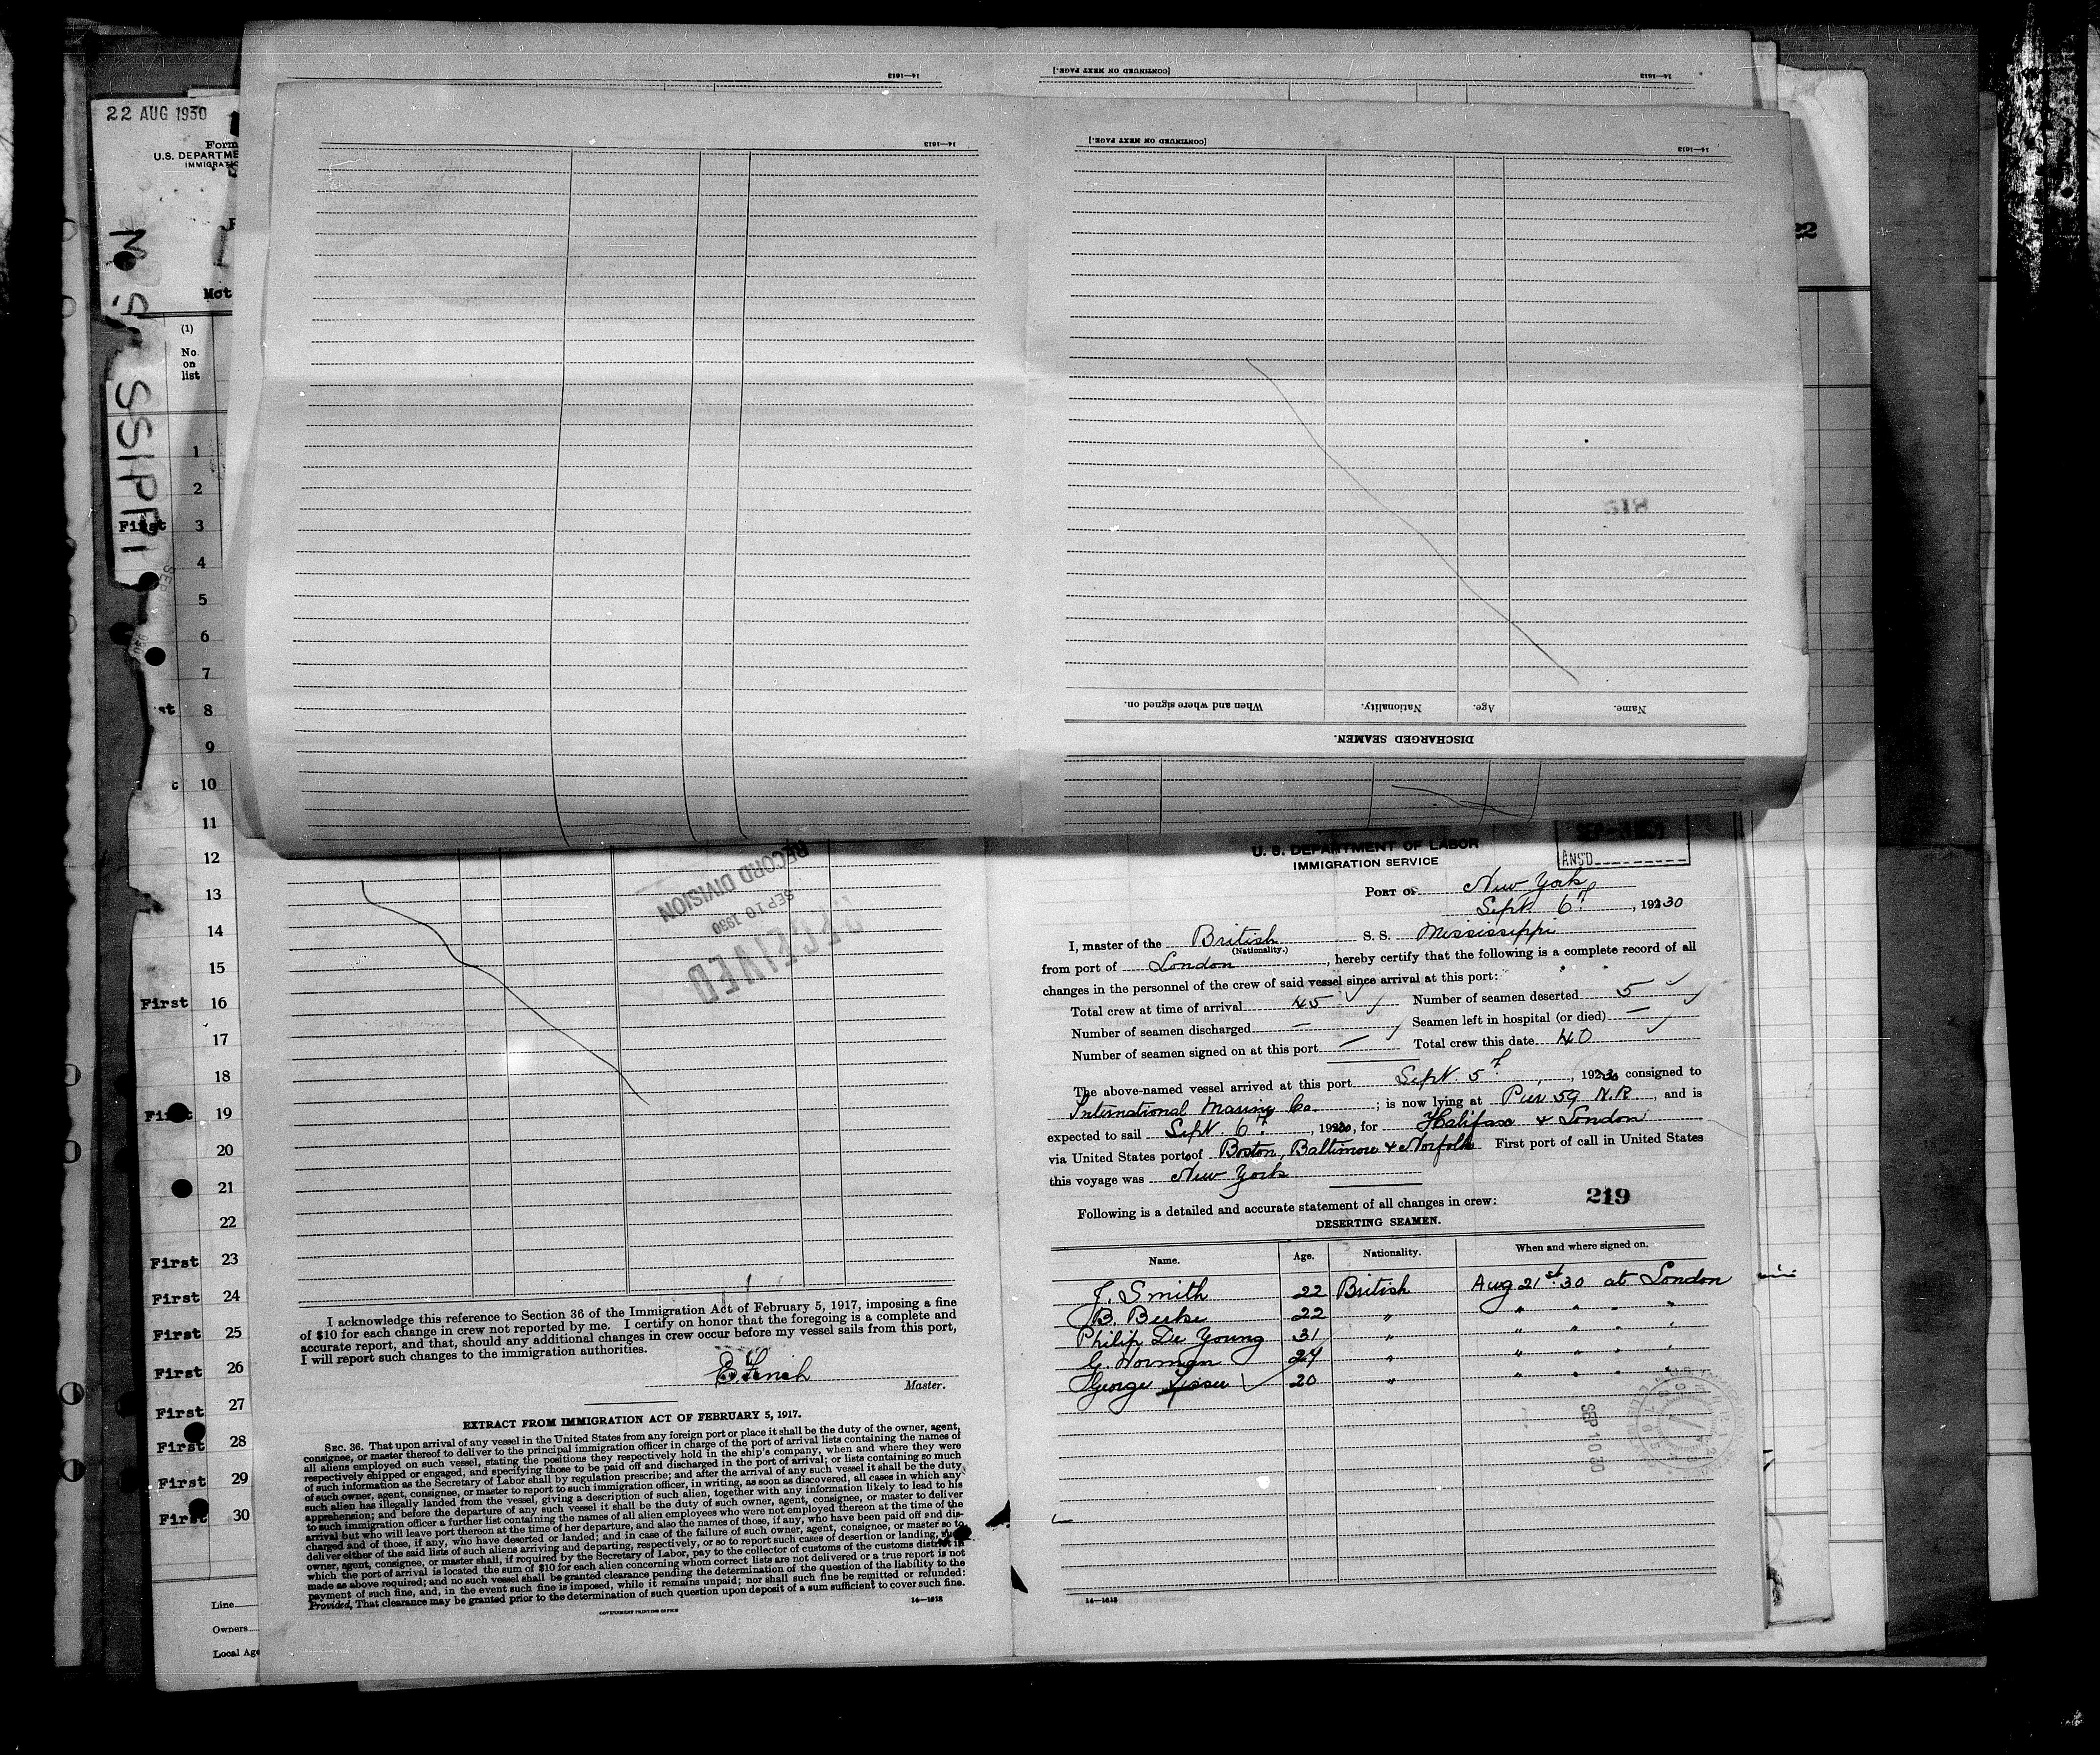 14—1613
[CONTINUED ON NEXT PAGE.]
14—1613
14—1613
[CONTINUED ON NEXT PAGE.]
14—1613
Name.
Age.
Nationality.
When and where signed on.
DISCHARGED SEAMEN.
22 AUG 1930
Form
U.S. DEPARTME
IMMIGRATIO
Mot
(1)
No
on
list
1
2
First 3
4
5
6
7
st 8
9
10
11
12
13
14
15
First 16
17
18
First 19
20
21
22
First 23
First 24
First 25
First 26
First 27
First 28
First 29
First 30
Line
Owners
Local Age
22
RECEIVED
SEP 10 1930
RECORD DIVISION
I acknowledge this reference to Section 36 of the Immigration Act of February 5, 1917, imposing a fine
of $10 for each change in crew not reported by me. I certify on honor that the foregoing is a complete and
accurate report, and that, should any additional changes in crew occur before my vessel sails from this port,
I will report such changes to the immigration authorities.
E. Finch
Master.
EXTRACT FROM IMMIGRATION ACT OF FEBRUARY 5, 1917.
SEC. 36. That upon arrival of any vessel in the United States from any foreign port or place it shall be the duty of the owner, agent,
consignee, or master thereof to deliver to the principal immigration officer in charge of the port of arrival lists containing the names of
all aliens employed on such vessel, stating the positions they respectively hold in the ship's company, when and where they were
respectively shipped or engaged, and specifying those to be paid off and discharged in the port of arrival; or lists containing so much
of such information as the Secretary of Labor shall by regulation prescribe; and after the arrival of any such vessel it shall be the duty
of such owner, agent, consignee, or master to report to such immigration officer, in writing, as soon as discovered, all cases in which any
such alien has illegally landed from the vessel, giving a description of such alien, together with any information likely to lead to his
apprehension; and before the departure of any such vessel it shall be the duty of such owner, agent, consignee, or master to deliver
to such immigration officer a further list containing the names of all alien employees who were not employed thereon at the time of the
arrival but who will leave port thereon at the time of her departure, and also the names of those, if any, who have been paid off and dis-
charged and of those, if any, who have deserted or landed; and in case of the failure of such owner, agent, consignee, or master so to
deliver either of the said lists of such aliens arriving and departing, respectively, or so to report such cases of desertion or landing, such
owner, agent, consignee, or master shall, if required by the Secretary of Labor, pay to the collector of customs of the customs district in
which the port of arrival is located the sum of $10 for each alien concerning whom correct lists are not delivered or a true report is not
made as above required; and no such vessel shall be granted clearance pending the determination of the question of the liability to the
payment of such fine, and, in the event such fine is imposed, while it remains unpaid; nor shall such fine be remitted or refunded:
Provided, That clearance may be granted prior to the determination of such question upon deposit of a sum sufficient to cover such fine.
GOVERNMENT PRINTING OFFICE
14—1613
ANS'D
U. S. DEPARTMENT OF LABOR
IMMIGRATION SERVICE
PORT OF New York
Sept. 6th, 1930
I, master of the British S. S. Mississippi
(Nationality.)
from port of London, hereby certify that the following is a complete record of all
changes in the personnel of the crew of said vessel since arrival at this port:
Total crew at time of arrival 45 Number of seamen deserted 5
Number of seamen discharged — Seamen left in hospital (or died) —
Number of seamen signed on at this port — Total crew this date 40
The above-named vessel arrived at this port Sept. 5th, 1930 consigned to
International Marine Co.; is now lying at Pier 59 N.R., and is
expected to sail Sept. 6th, 1930, for Halifax & London
via United States ports of Boston, Baltimore & Norfolk First port of call in United States
this voyage was New York
Following is a detailed and accurate statement of all changes in crew: 219
DESERTING SEAMEN.
Name. Age. Nationality. When and where signed on.
J. Smith 22 British Aug 21st 30 at London
B. 22 " " " " "
Philip De Young 31 " " " " "
G. Norman 24 " " " " "
George 20 " " " " "
SEP 10 30
14—1613